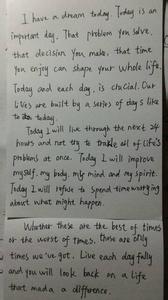 I have a dream today. Today is an
important day. That problem you solve,
that decision you make, that time
you enjoy can shape your whole life.
Today and each day, is crucial. Our
lives are built by a series of days like
to day.
Today I will live through the next 24
hours and not try to tackle all of life's
problems at once. Today I will improve
myself, my body, my mind and my spirit.
Today I will refuse to spend time worrying
about what might happen.
Whether these are the best of times
or the worst of times. These are only
times we've got. Live each day fully
and you will look back on a life
that made a difference.